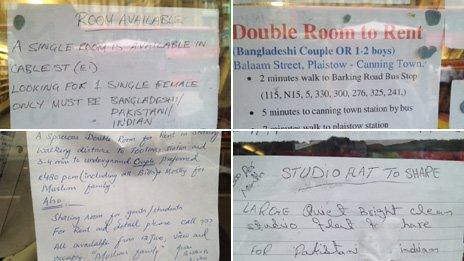 ROOM AVAILABLE
A SINGLE ROOM IS AVAILABLE IN
CABLE ST (E1)
LOOKING FOR 1 SINGLE FEMALE
ONLY MUST BE BANGLADESHI/
PAKISTANI/
INDIAN
Double Room to Rent
(Bangladeshi Couple OR 1-2 boys)
Balaam Street, Plaistow - Canning Town.
2 minutes walk to Barking Road Bus Stop
(115, N15, 5, 330, 300, 276, 325, 241,)
5 minutes to canning town station by bus
7 minutes walk to plaistow station
A Spacious Double Room for Rent in
walking distance to Tooting station and
3-4 min to underground Couple preferred
£480 pcm (including all Bills) Mostly for
Muslim family
Also:
Sharing Room for gents/students
For Rent and detail phone call
All available from 12 June, view and
occupy. "Muslim family"
STUDIO FLAT TO SHARE
LARGE Quiet Bright clean
studio flat to have
FOR Pakistan indian